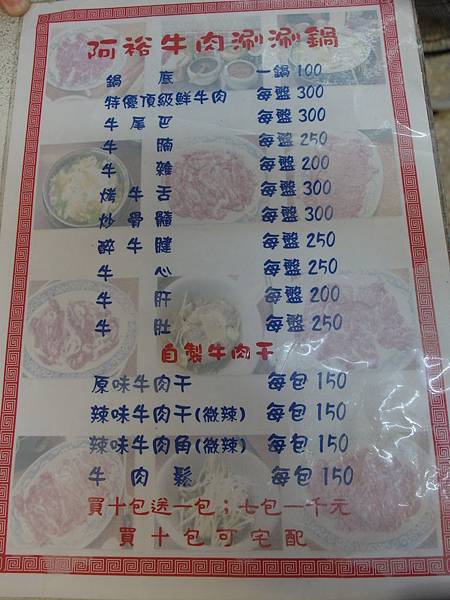 阿裕牛肉涮涮鍋
鍋底 一鍋 100
特優頂級鮮牛肉 每盤 300
牛尾巴 每盤 300
牛腩 每盤 250
牛雜 每盤 200
烤牛舌 每盤 300
炒骨髓 每盤 300
醉牛腱 每盤 250
牛心 每盤 250
牛肝 每盤 200
牛肚 每盤 250
自製牛肉干
原味牛肉干 每包 150
辣味牛肉干(微辣) 每包 150
辣味牛肉角(微辣) 每包 150
牛肉鬆 每包 150
買十包送一包；七包一千元
買十包可宅配